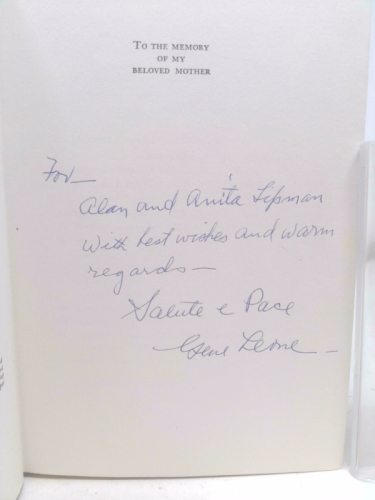 TO THE MEMORY
OF MY
BELOVED MOTHER
For—
Alan and Anita Lipman
With best wishes and warm
regards—
Salute e Pace
Gene Leone—